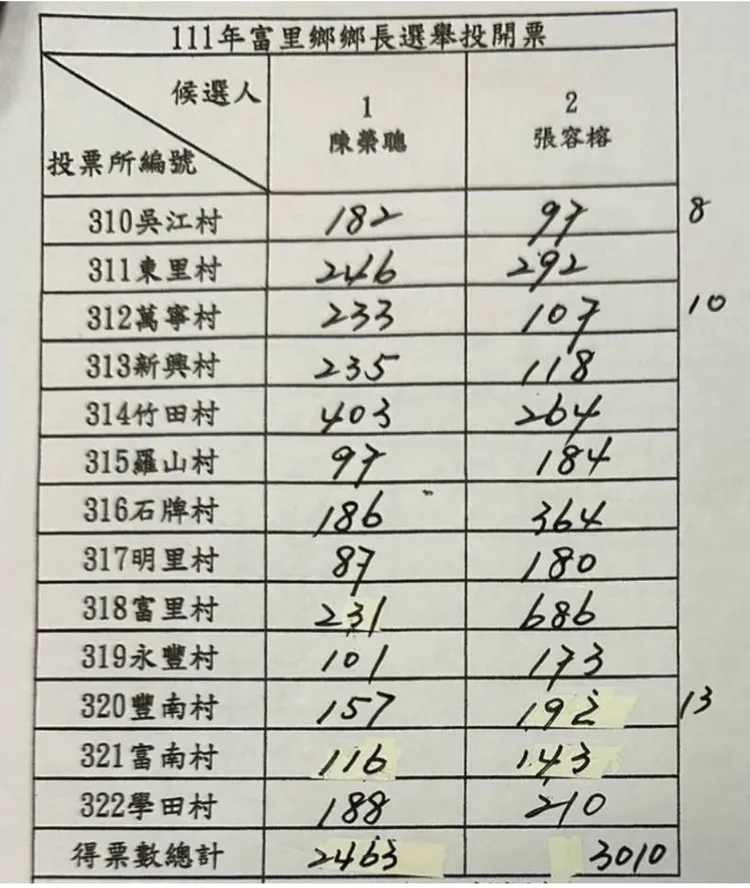 111年富里鄉鄉長選舉投開票
候選人 1 2
投票所編號 陳榮聰 張容榕
310吳江村 182 97 8
311東里村 246 292
312萬寧村 233 107 10
313新興村 235 118
314竹田村 403 264
315羅山村 97 184
316石牌村 186 364
317明里村 87 180
318富里村 231 686
319永豐村 101 173
320豐南村 157 192 13
321富南村 116 143
322學田村 188 210
得票數總計 2463 3010